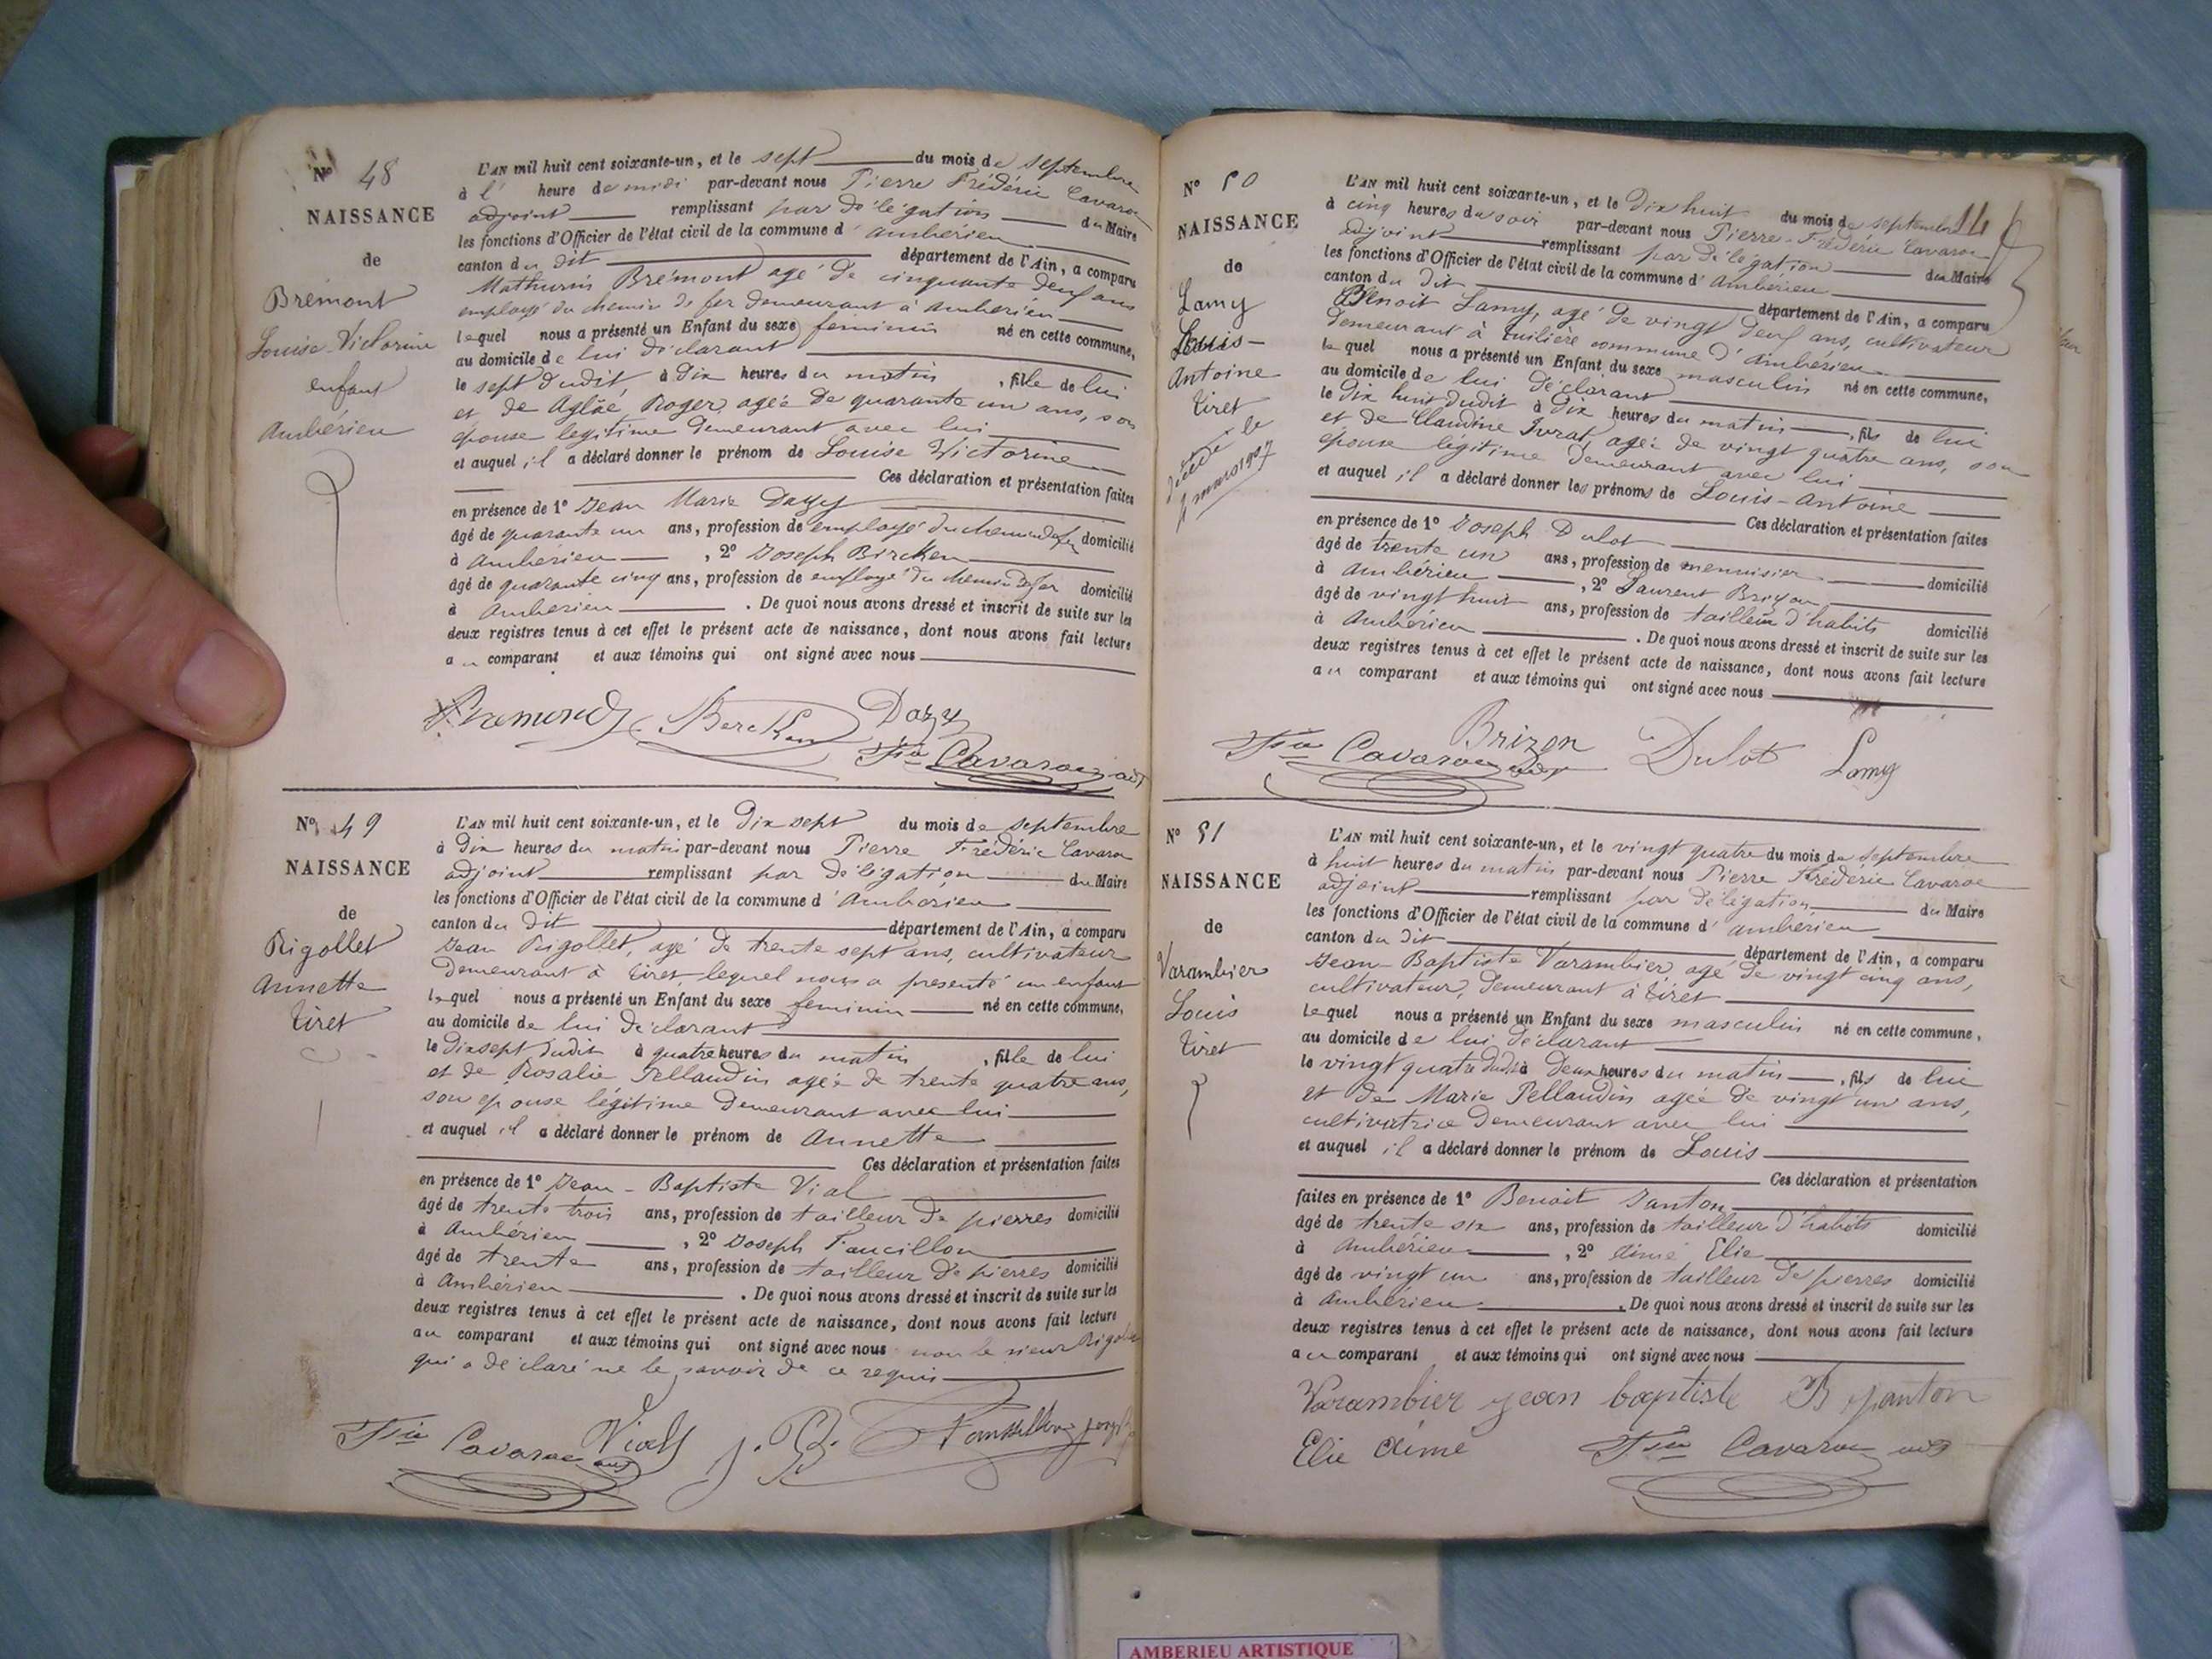 N° 48
NAISSANCE
de
Brémont
Louise-Victorine
enfant
Ambérieu
L'AN mil huit cent soixante-un, et le sept du mois de septembre
à l' heure de midi par-devant nous Pierre Frédéric Cavaroc
adjoint remplissant par délégation du Maire
les fonctions d'Officier de l'état civil de la commune d'Ambérieu
canton du dit département de l'Ain, a comparu
Mathurin Brémont agé de cinquante deux ans
employé du chemin de fer demeurant à Ambérieu
lequel nous a présenté un Enfant du sexe feminin né en cette commune,
au domicile de lui déclarant
le sept dudit à dix heures du matin , fille de lui
et de Aglaé Roger agée de quarante un ans, son
épouse legitime demeurant avec lui
et auquel il a déclaré donner le prénom de Louise Victorine
Ces déclaration et présentation faites
en présence de 1° Jean Marie Dazy
âgé de quarante un ans, profession de employé du chemin de fer domicilié
à Ambérieu , 2° Joseph Bircken
âgé de quarante cinq ans, profession de employé du chemin de fer domicilié
à Ambérieu . De quoi nous avons dressé et inscrit de suite sur les
deux registres tenus à cet effet le présent acte de naissance, dont nous avons fait lecture
au comparant et aux témoins qui ont signé avec nous
Bremond Bercken Dazy
Fric Cavaroc adj
N° 49
NAISSANCE
de
Rigollet
Annette
Tiret
L'AN mil huit cent soixante-un, et le dix sept du mois de septembre
à dix heures du matin par-devant nous Pierre Frédéric Cavaroc
adjoint remplissant par délégation du Maire
les fonctions d'Officier de l'état civil de la commune d'Ambérieu
canton du dit département de l'Ain, a comparu
Jean Rigollet, agé de trente sept ans, cultivateur
demeurant à Tiret, lequel nous a présenté un enfant
lequel nous a présenté un Enfant du sexe feminin né en cette commune,
au domicile de lui déclarant
le dix sept dudit à quatre heures du matin , fille de lui
et de Rosalie Pellaudin agée de trente quatre ans,
son epouse légitime demeurant avec lui
et auquel il a déclaré donner le prénom de Annette
Ces déclaration et présentation faites
en présence de 1° Jean-Baptiste Vial
âgé de trente trois ans, profession de tailleur de pierres domicilié
à Ambérieu , 2° Joseph Faucillon
âgé de trente ans, profession de tailleur de pierres domicilié
à Ambérieu . De quoi nous avons dressé et inscrit de suite sur les
deux registres tenus à cet effet le présent acte de naissance, dont nous avons fait lecture
au comparant et aux témoins qui ont signé avec nous non le sieur Rigollet
qui a déclaré ne le savoir de ce requis
Fric Cavaroc Vial J. B. joseph
N° 50
NAISSANCE
de
Lamy
Louis-
Antoine
Tiret
décédé le
4 mars 1907
L'AN mil huit cent soixante-un, et le dix huit du mois de septembre
à cinq heures du soir par-devant nous Pierre-Frédéric Cavaroc
adjoint remplissant par délégation du Maire
les fonctions d'Officier de l'état civil de la commune d'Ambérieu
canton du dit département de l'Ain, a comparu
Benoit Lamy, agé de vingt deux ans, cultivateur
demeurant à Tuilière commune d'Ambérieu
lequel nous a présenté un Enfant du sexe masculin né en cette commune,
au domicile de lui déclarant
le dix huit dudit à dix heures du matin , fils de lui
et de Claudine Juvrat, agée de vingt quatre ans, son
épouse légitime demeurant avec lui
et auquel il a déclaré donner les prénoms de Louis-Antoine
Ces déclaration et présentation faites
en présence de 1° Joseph Dulot
âgé de trente un ans, profession de menuisier domicilié
à Ambérieu , 2° Laurent Brizon
âgé de vingt huit ans, profession de tailleur d'habits domicilié
à Ambérieu . De quoi nous avons dressé et inscrit de suite sur les
deux registres tenus à cet effet le présent acte de naissance, dont nous avons fait lecture
au comparant et aux témoins qui ont signé avec nous
Fric Cavaroc adj Brizon Dulot Lamy
N° 51
NAISSANCE
de
Varambier
Louis
Tiret
L'AN mil huit cent soixante-un, et le vingt quatre du mois de septembre
à huit heures du matin par-devant nous Pierre Frédéric Cavaroc
adjoint remplissant par délégation du Maire
les fonctions d'Officier de l'état civil de la commune d'Ambérieu
canton du dit département de l'Ain, a comparu
Jean-Baptiste Varambier, agé de vingt cinq ans,
cultivateur, demeurant à Tiret
lequel nous a présenté un Enfant du sexe masculin né en cette commune,
au domicile de lui déclarant
le vingt quatre dudit à deux heures du matin , fils de lui
et de Marie Pellaudin agée de vingt un ans,
cultivatrice demeurant avec lui
et auquel il a déclaré donner le prénom de Louis
Ces déclaration et présentation
faites en présence de 1° Benoit Janton
âgé de trente six ans, profession de tailleur d'habits domicilié
à Ambérieu , 2° Aimé Elie
âgé de vingt un ans, profession de tailleur de pierres domicilié
à Ambérieu . De quoi nous avons dressé et inscrit de suite sur les
deux registres tenus à cet effet le présent acte de naissance, dont nous avons fait lecture
au comparant et aux témoins qui ont signé avec nous
Varambier jean baptiste B janton
Elie Aimé Fric Cavaroc adj
AMBERIEU ARTISTIQUE